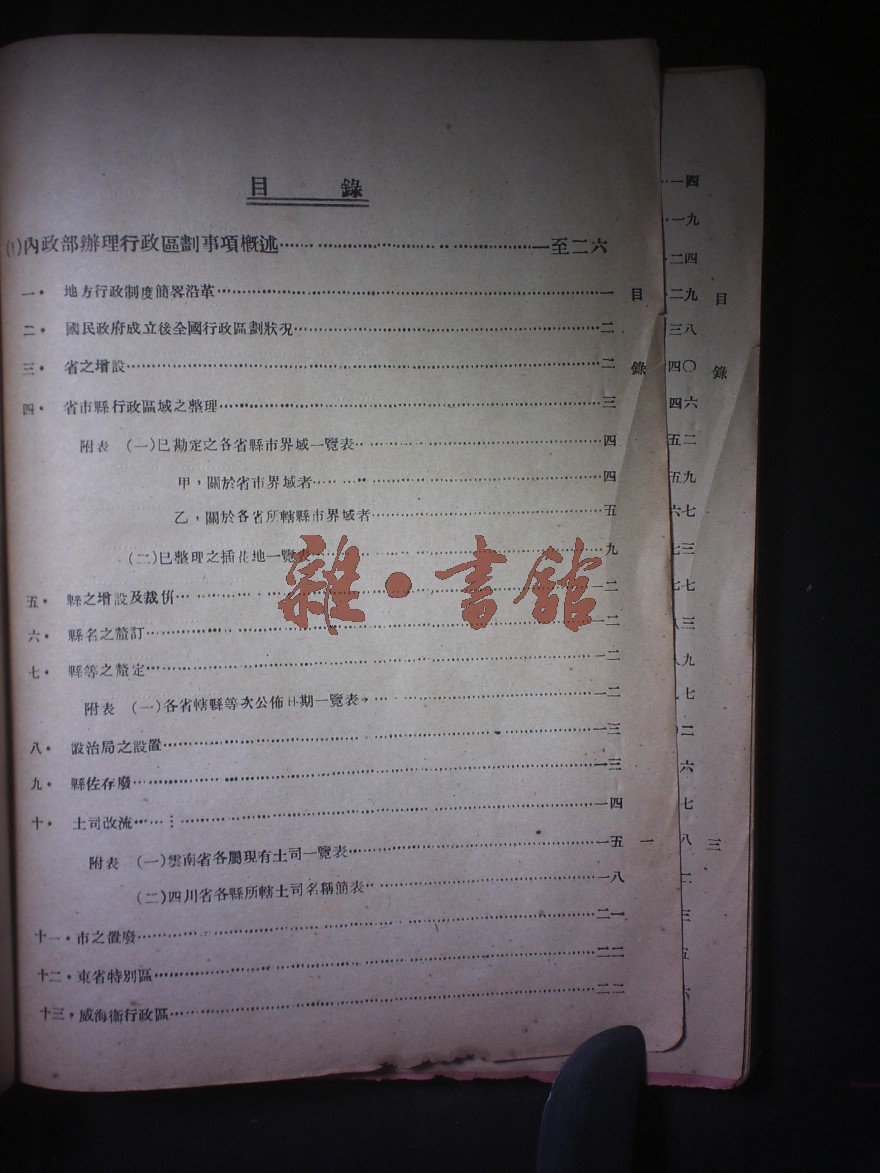 目錄
(1)內政部辦理行政區劃事項概述……一至二六
一・ 地方行政制度簡畧沿革……一
二・ 國民政府成立後全國行政區劃狀况……二
三・ 省之增設……二
四・ 省市縣行政區域之整理……三
附表 (一)已勘定之各省縣市界域一覽表……四
甲，關於省市界域者……四
乙，關於各省所轄縣市界域者……五
(二)已整理之插花地一覽表……九
五・ 縣之增設及裁倂……一二
六・ 縣名之釐訂……一二
七・ 縣等之釐定……一二
附表 (一)各省轄縣等次公佈日期一覽表……一二
八・ 設治局之設置……一三
九・ 縣佐存廢……一三
十・ 土司改流……一四
附表 (一)雲南省各屬現有土司一覽表……一五
(二)四川省各縣所轄土司名稱簡表……一八
十一・市之置廢……二一
十二・東省特別區……二二
十三，威海衞行政區……二二
目錄 一
雜・書館
一四
一九
二四
二九
三八
四〇
四六
五二
五九
六七
七三
七七
目錄 三